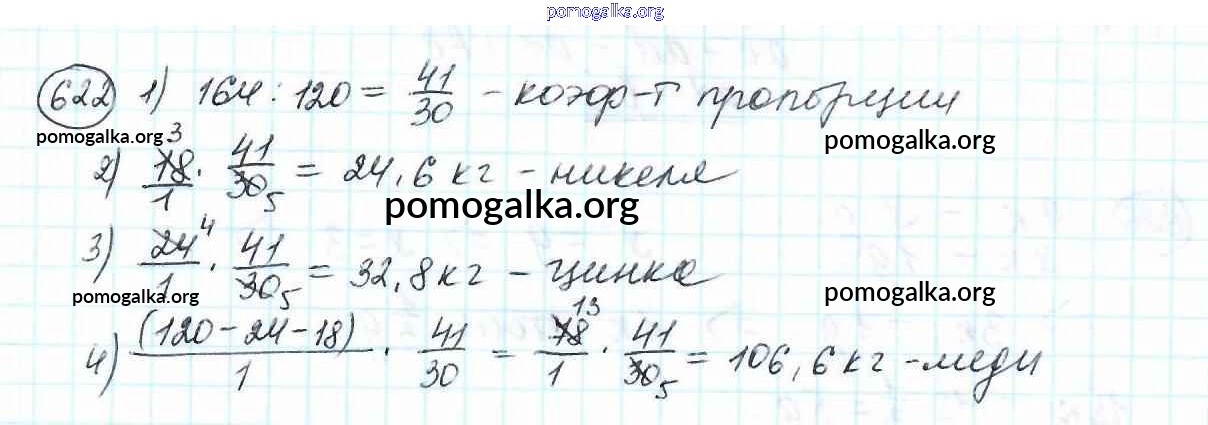 pomogalka.org
622 1) 164 : 120 = 41/30 - коэф-т пропорции
pomogalka.org pomogalka.org
2) 18/1 3 · 41/30 5 = 24,6 кг - никеля
pomogalka.org
3) 24/1 4 · 41/30 5 = 32,8 кг - цинка
pomogalka.org pomogalka.org
4) (120 - 24 - 18)/1 · 41/30 = 78/1 13 · 41/30 5 = 106,6 кг - меди